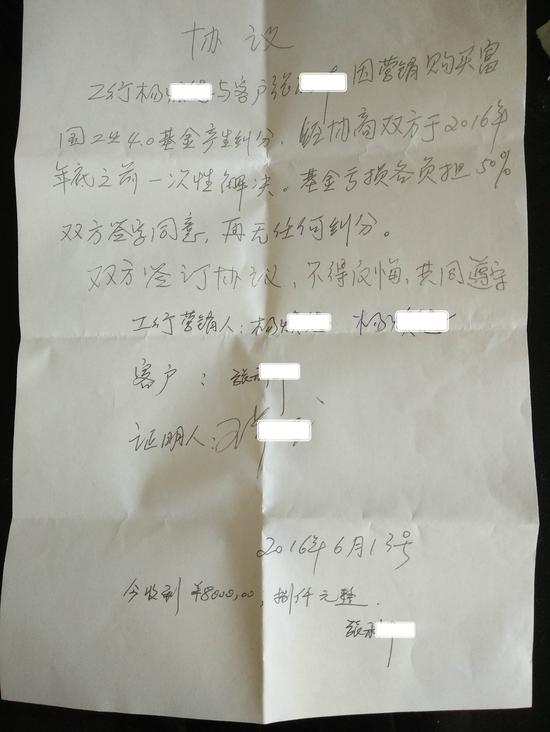 协议
工行杨 与客户张 因营销购买富
国工业4.0基金产生纠分,经协商双方于2016年
年底之前一次性解决。基金亏损各负担50%
双方签字同意,再无任何纠分。
双方签订协议,不得反悔,共同遵守
工行营销人:杨 杨
客户:张
证明人:
2016年6月13号
今收到¥8000.00,捌仟元整.
张